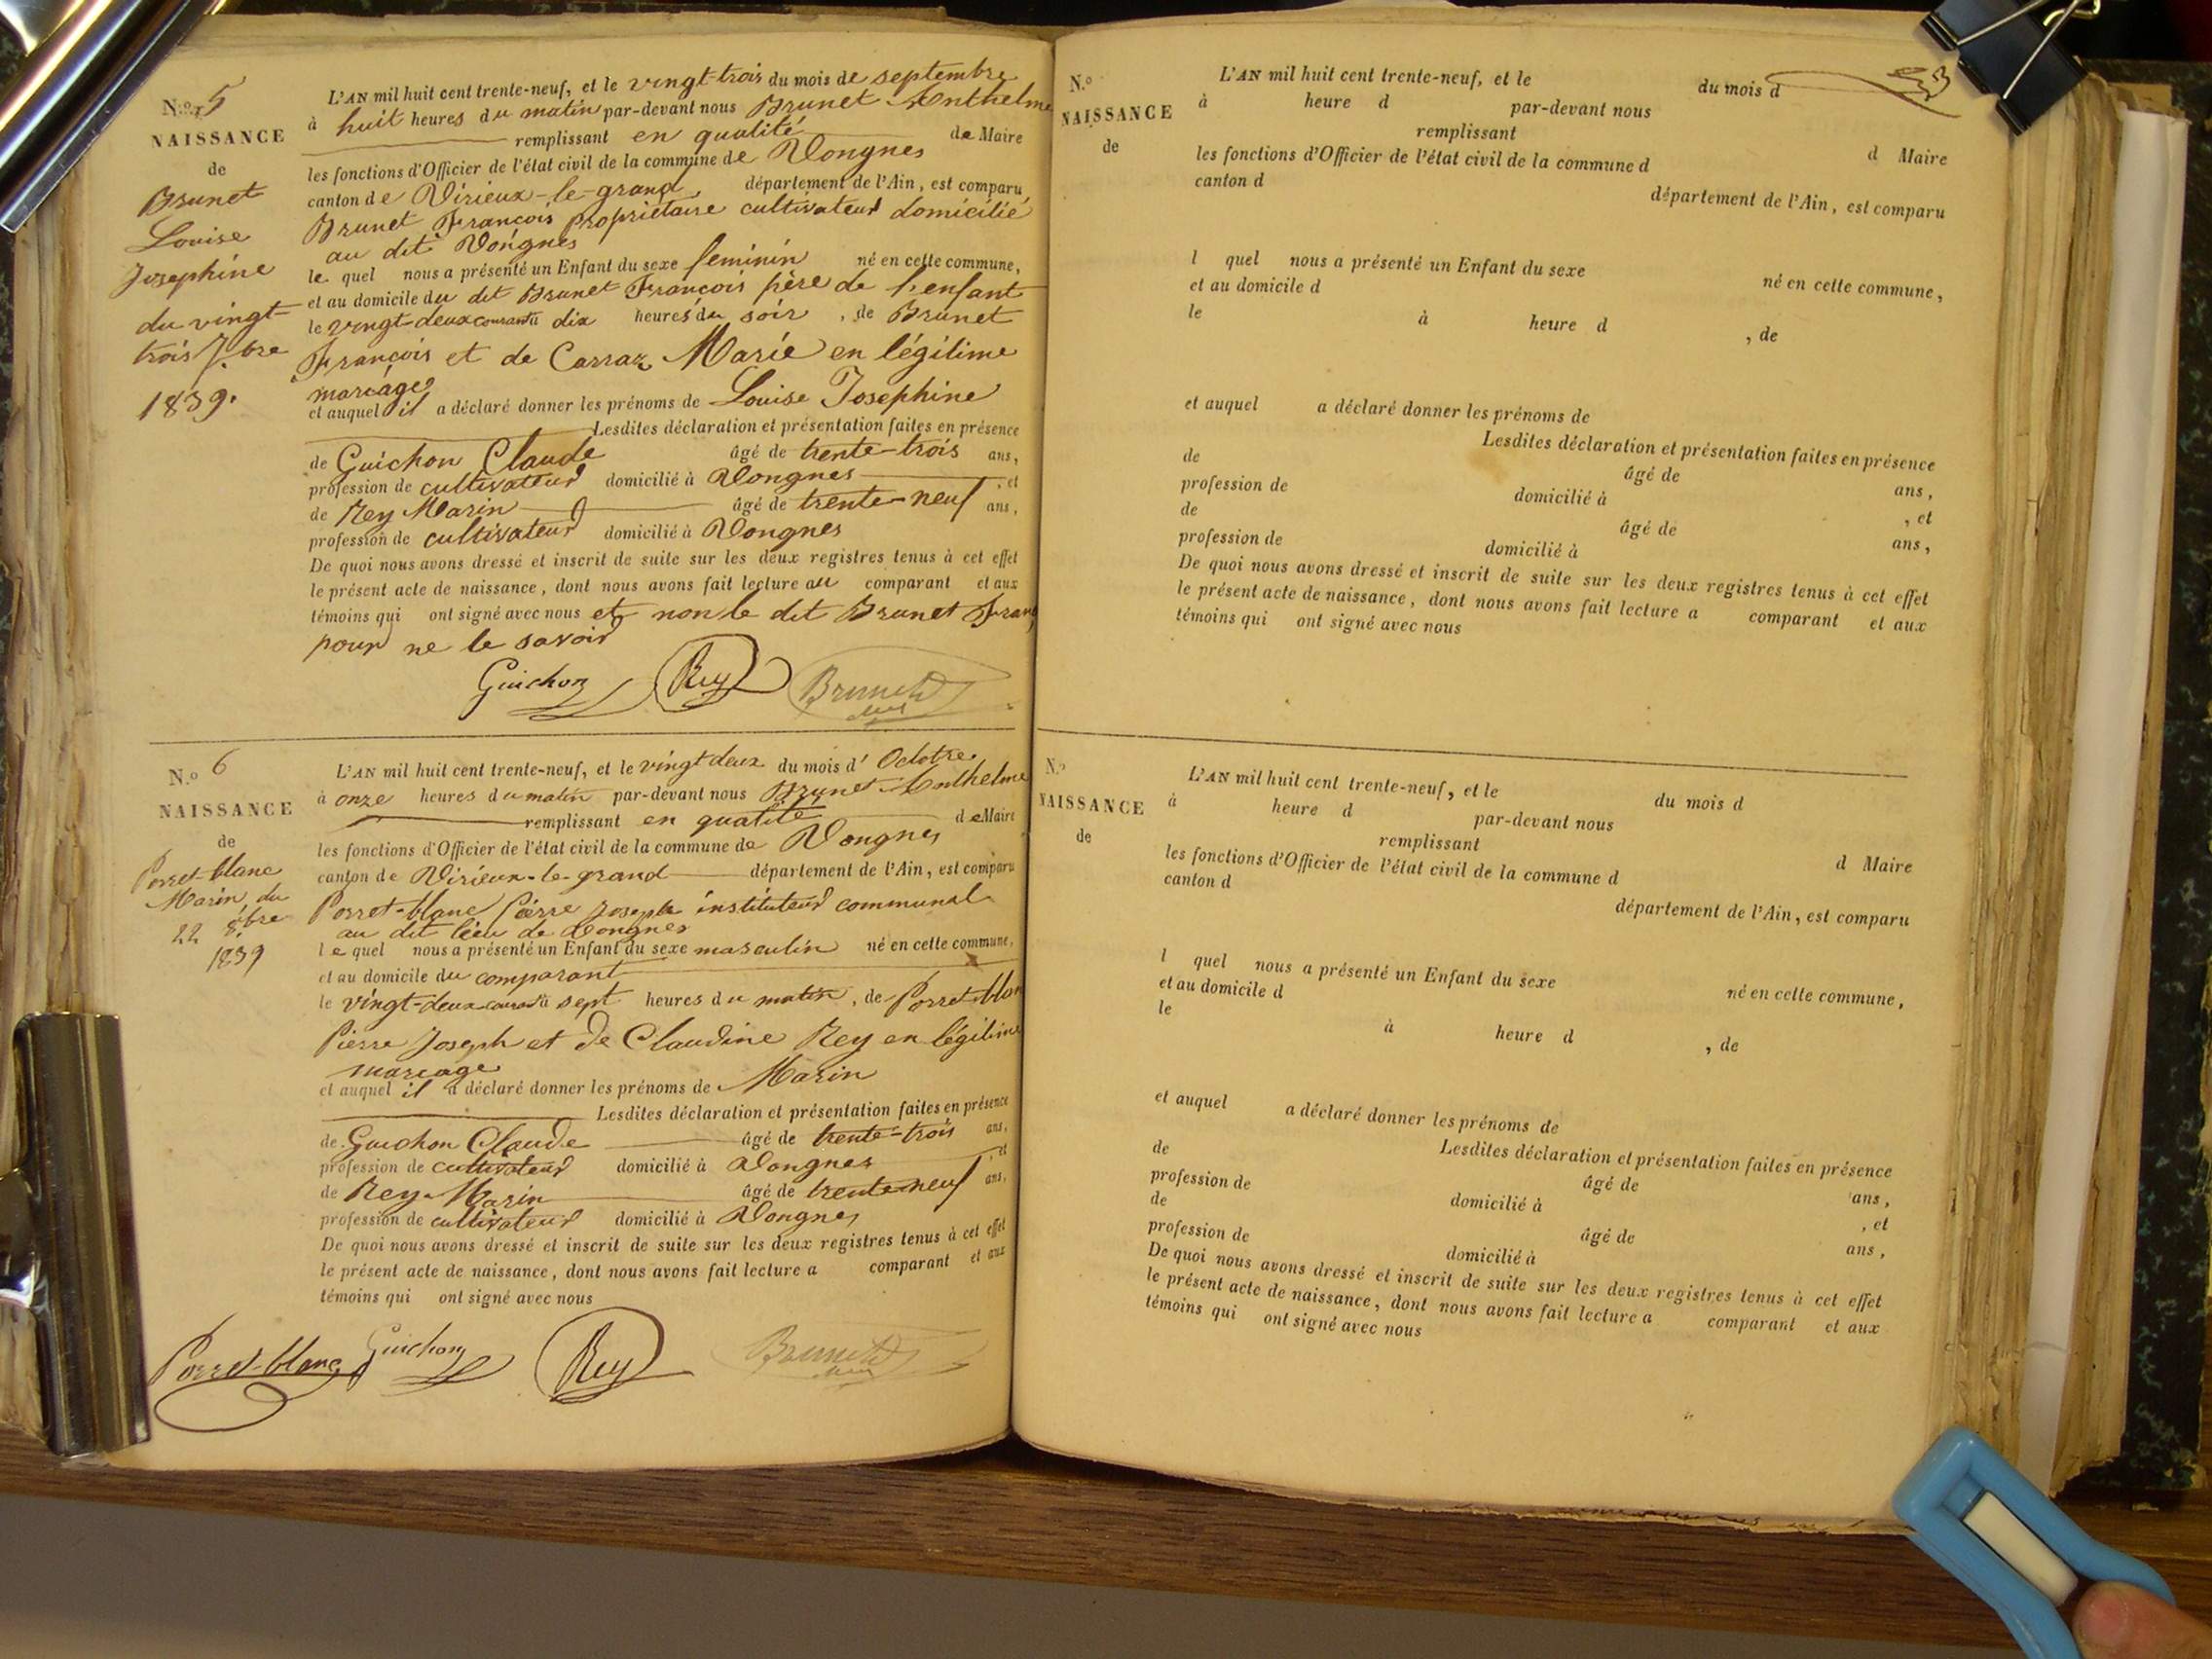 N.º 5
NAISSANCE
de
Brunet
Louise
Josephine
du vingt
trois 7.bre
1839.
L'AN mil huit cent trente-neuf, et le vingt-trois du mois de septembre
à huit heures du matin par-devant nous Brunet Anthelme
remplissant en qualité de Maire
les fonctions d'Officier de l'état civil de la commune de Vongnes
canton de Virieux-le-grand, département de l'Ain, est comparu
Brunet François propriétaire cultivateur domicilié
au dit Vongnes
le quel nous a présenté un Enfant du sexe feminin né en cette commune,
et au domicile du dit Brunet François père de l'enfant
le vingt-deux courant à dix heures du soir, de Brunet
François et de Carraz Marie en légitime
mariage
et auquel il a déclaré donner les prénoms de Louise Josephine
Lesdites déclaration et présentation faites en présence
de Guichon Claude âgé de trente-trois ans,
profession de cultivateur domicilié à Vongnes, et
de Rey Marin âgé de trente-neuf ans,
profession de cultivateur domicilié à Vongnes
De quoi nous avons dressé et inscrit de suite sur les deux registres tenus à cet effet
le présent acte de naissance, dont nous avons fait lecture au comparant et aux
témoins qui ont signé avec nous et non le dit Brunet Franç
pour ne le savoir
Guichon Rey Brunet
N.º 6
NAISSANCE
de
Porret-blanc
Marin, du
22 8.bre
1839
L'AN mil huit cent trente-neuf, et le vingt deux du mois d'Octobre
à onze heures du matin par-devant nous Brunet Anthelme
remplissant en qualité de Maire
les fonctions d'Officier de l'état civil de la commune de Vongnes
canton de Virieux-le-grand département de l'Ain, est comparu
Porret-blanc Pierre Joseph instituteur communal
au dit lieu de Vongnes
le quel nous a présenté un Enfant du sexe masculin né en cette commune,
et au domicile du comparant
le vingt-deux courant à sept heures du matin, de Porret-blan
Pierre Joseph et de Claudine Rey en légitime
mariage
et auquel il a déclaré donner les prénoms de Marin
Lesdites déclaration et présentation faites en présence
de Guichon Claude âgé de trente-trois ans,
profession de cultivateur domicilié à Vongnes, et
de Rey Marin âgé de trente-neuf ans,
profession de cultivateur domicilié à Vongnes
De quoi nous avons dressé et inscrit de suite sur les deux registres tenus à cet effet
le présent acte de naissance, dont nous avons fait lecture a comparant et aux
témoins qui ont signé avec nous
Porret-blanc Guichon Rey Brunet
N.º
NAISSANCE
de
L'AN mil huit cent trente-neuf, et le du mois d
à heure d par-devant nous
remplissant d Maire
les fonctions d'Officier de l'état civil de la commune d
canton d département de l'Ain, est comparu
l quel nous a présenté un Enfant du sexe né en cette commune,
et au domicile d
le à heure d , de
et auquel a déclaré donner les prénoms de
Lesdites déclaration et présentation faites en présence
de âgé de ans,
profession de domicilié à , et
de âgé de ans,
profession de domicilié à
De quoi nous avons dressé et inscrit de suite sur les deux registres tenus à cet effet
le présent acte de naissance, dont nous avons fait lecture a comparant et aux
témoins qui ont signé avec nous
N.º
NAISSANCE
de
L'AN mil huit cent trente-neuf, et le du mois d
à heure d par-devant nous
remplissant d Maire
les fonctions d'Officier de l'état civil de la commune d
canton d département de l'Ain, est comparu
l quel nous a présenté un Enfant du sexe né en cette commune,
et au domicile d
le à heure d , de
et auquel a déclaré donner les prénoms de
Lesdites déclaration et présentation faites en présence
de âgé de ans,
profession de domicilié à , et
de âgé de ans,
profession de domicilié à
De quoi nous avons dressé et inscrit de suite sur les deux registres tenus à cet effet
le présent acte de naissance, dont nous avons fait lecture a comparant et aux
témoins qui ont signé avec nous